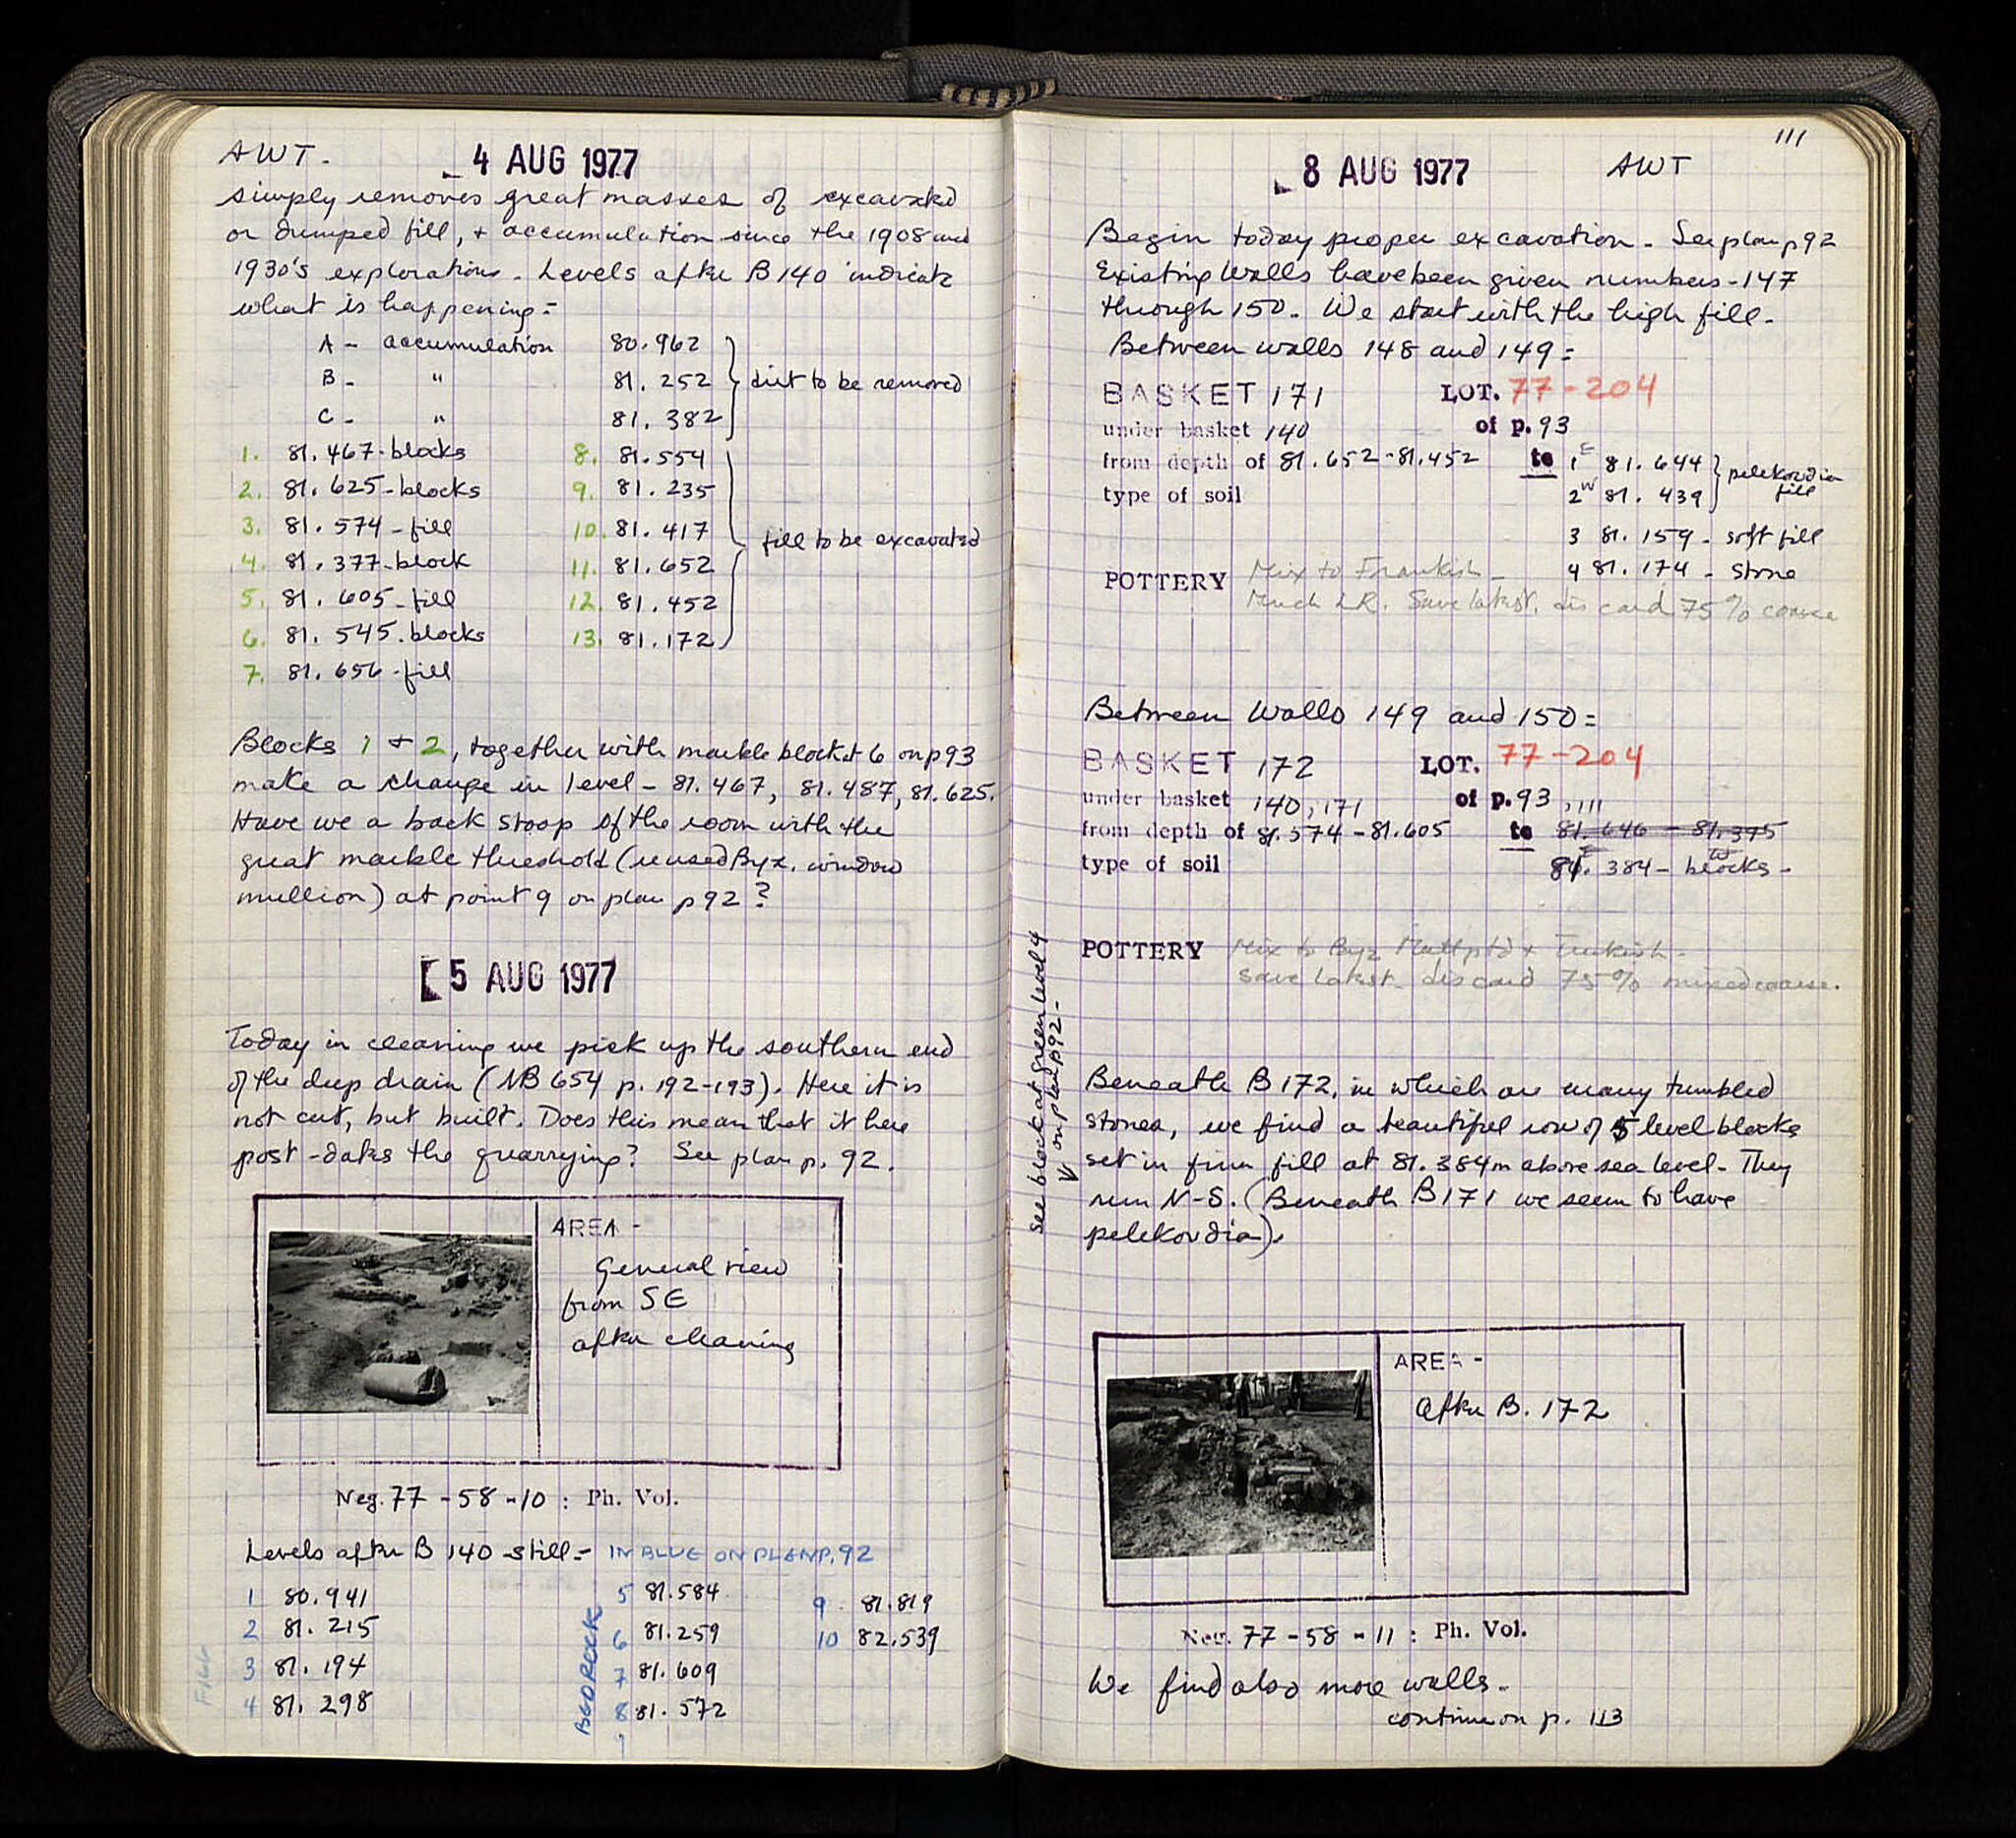 AWT - 4 AUG 1977
simply removes great masses of excavated
or dumped fill, + accumulation since the 1908 and
1930's explorations. Levels after B 140 indicate
what is happening:
A - accumulation 80.962
B - " 81.252 } dirt to be removed
C - " 81.382
1. 81.467 - blocks 8. 81.554
2. 81.625 - blocks 9. 81.235
3. 81.574 - fill 10. 81.417 } fill to be excavated
4. 81.377 - block 11. 81.652
5. 81.605 - fill 12. 81.452
6. 81.545 - blocks 13. 81.172
7. 81.656 - fill
Blocks 1 + 2, together with marble block at 6 on p 93
make a change in level - 81.467, 81.487, 81.625.
Have we a back stoop of the room with the
great marble threshold (reused Byz. window
mullion) at point 9 on plan p 92?
5 AUG 1977
Today in cleaning we pick up the southern end
of the deep drain (NB 654 p. 192-193). Here it is
not cut, but built. Does this mean that it here
post-dates the quarrying? See plan p. 92.
AREA -
General view
from SE
after cleaning
Neg. 77-58-10 : Ph. Vol.
Levels after B 140 still - IN BLUE ON PLAN P. 92
1 80.941 5 81.584 9 81.819
2 81.215 6 81.259 10 82.539
3 81.194 7 81.609
4 81.298 8 81.572
BEDROCK
111
8 AUG 1977 AWT
Begin today proper excavation. See plan p 92
Existing walls have been given numbers - 147
through 150. We start with the high fill.
Between walls 148 and 149:
BASKET 171 LOT. 77-204
under basket 140 of p. 93
from depth of 81.652-81.452 to 1E 81.644 } pelekoudia
type of soil 2W 81.439 fill
3 81.159 - soft fill
4 81.174 - stone
POTTERY Mix to Frankish -
Much LR. Save latest, discard 75% coarse
Between Walls 149 and 150:
BASKET 172 LOT. 77-204
under basket 140, 171 of p. 93, 111
from depth of 81.574-81.605 to 81.646 - 81.375
type of soil 81.384 - blocks -
POTTERY Mix to Byz Matt ptd + Turkish -
Save latest. discard 75% mixed coarse.
see block at green level 4
on plan p 92 -
Beneath B 172, in which are many tumbled
stones, we find a beautiful row of 5 level blocks
set in firm fill at 81.384 m above sea level. They
run N-S. (Beneath B 171 we seem to have
pelekoudia).
AREA -
After B. 172
Neg. 77-58-11 : Ph. Vol.
We find also more walls.
continue on p. 113